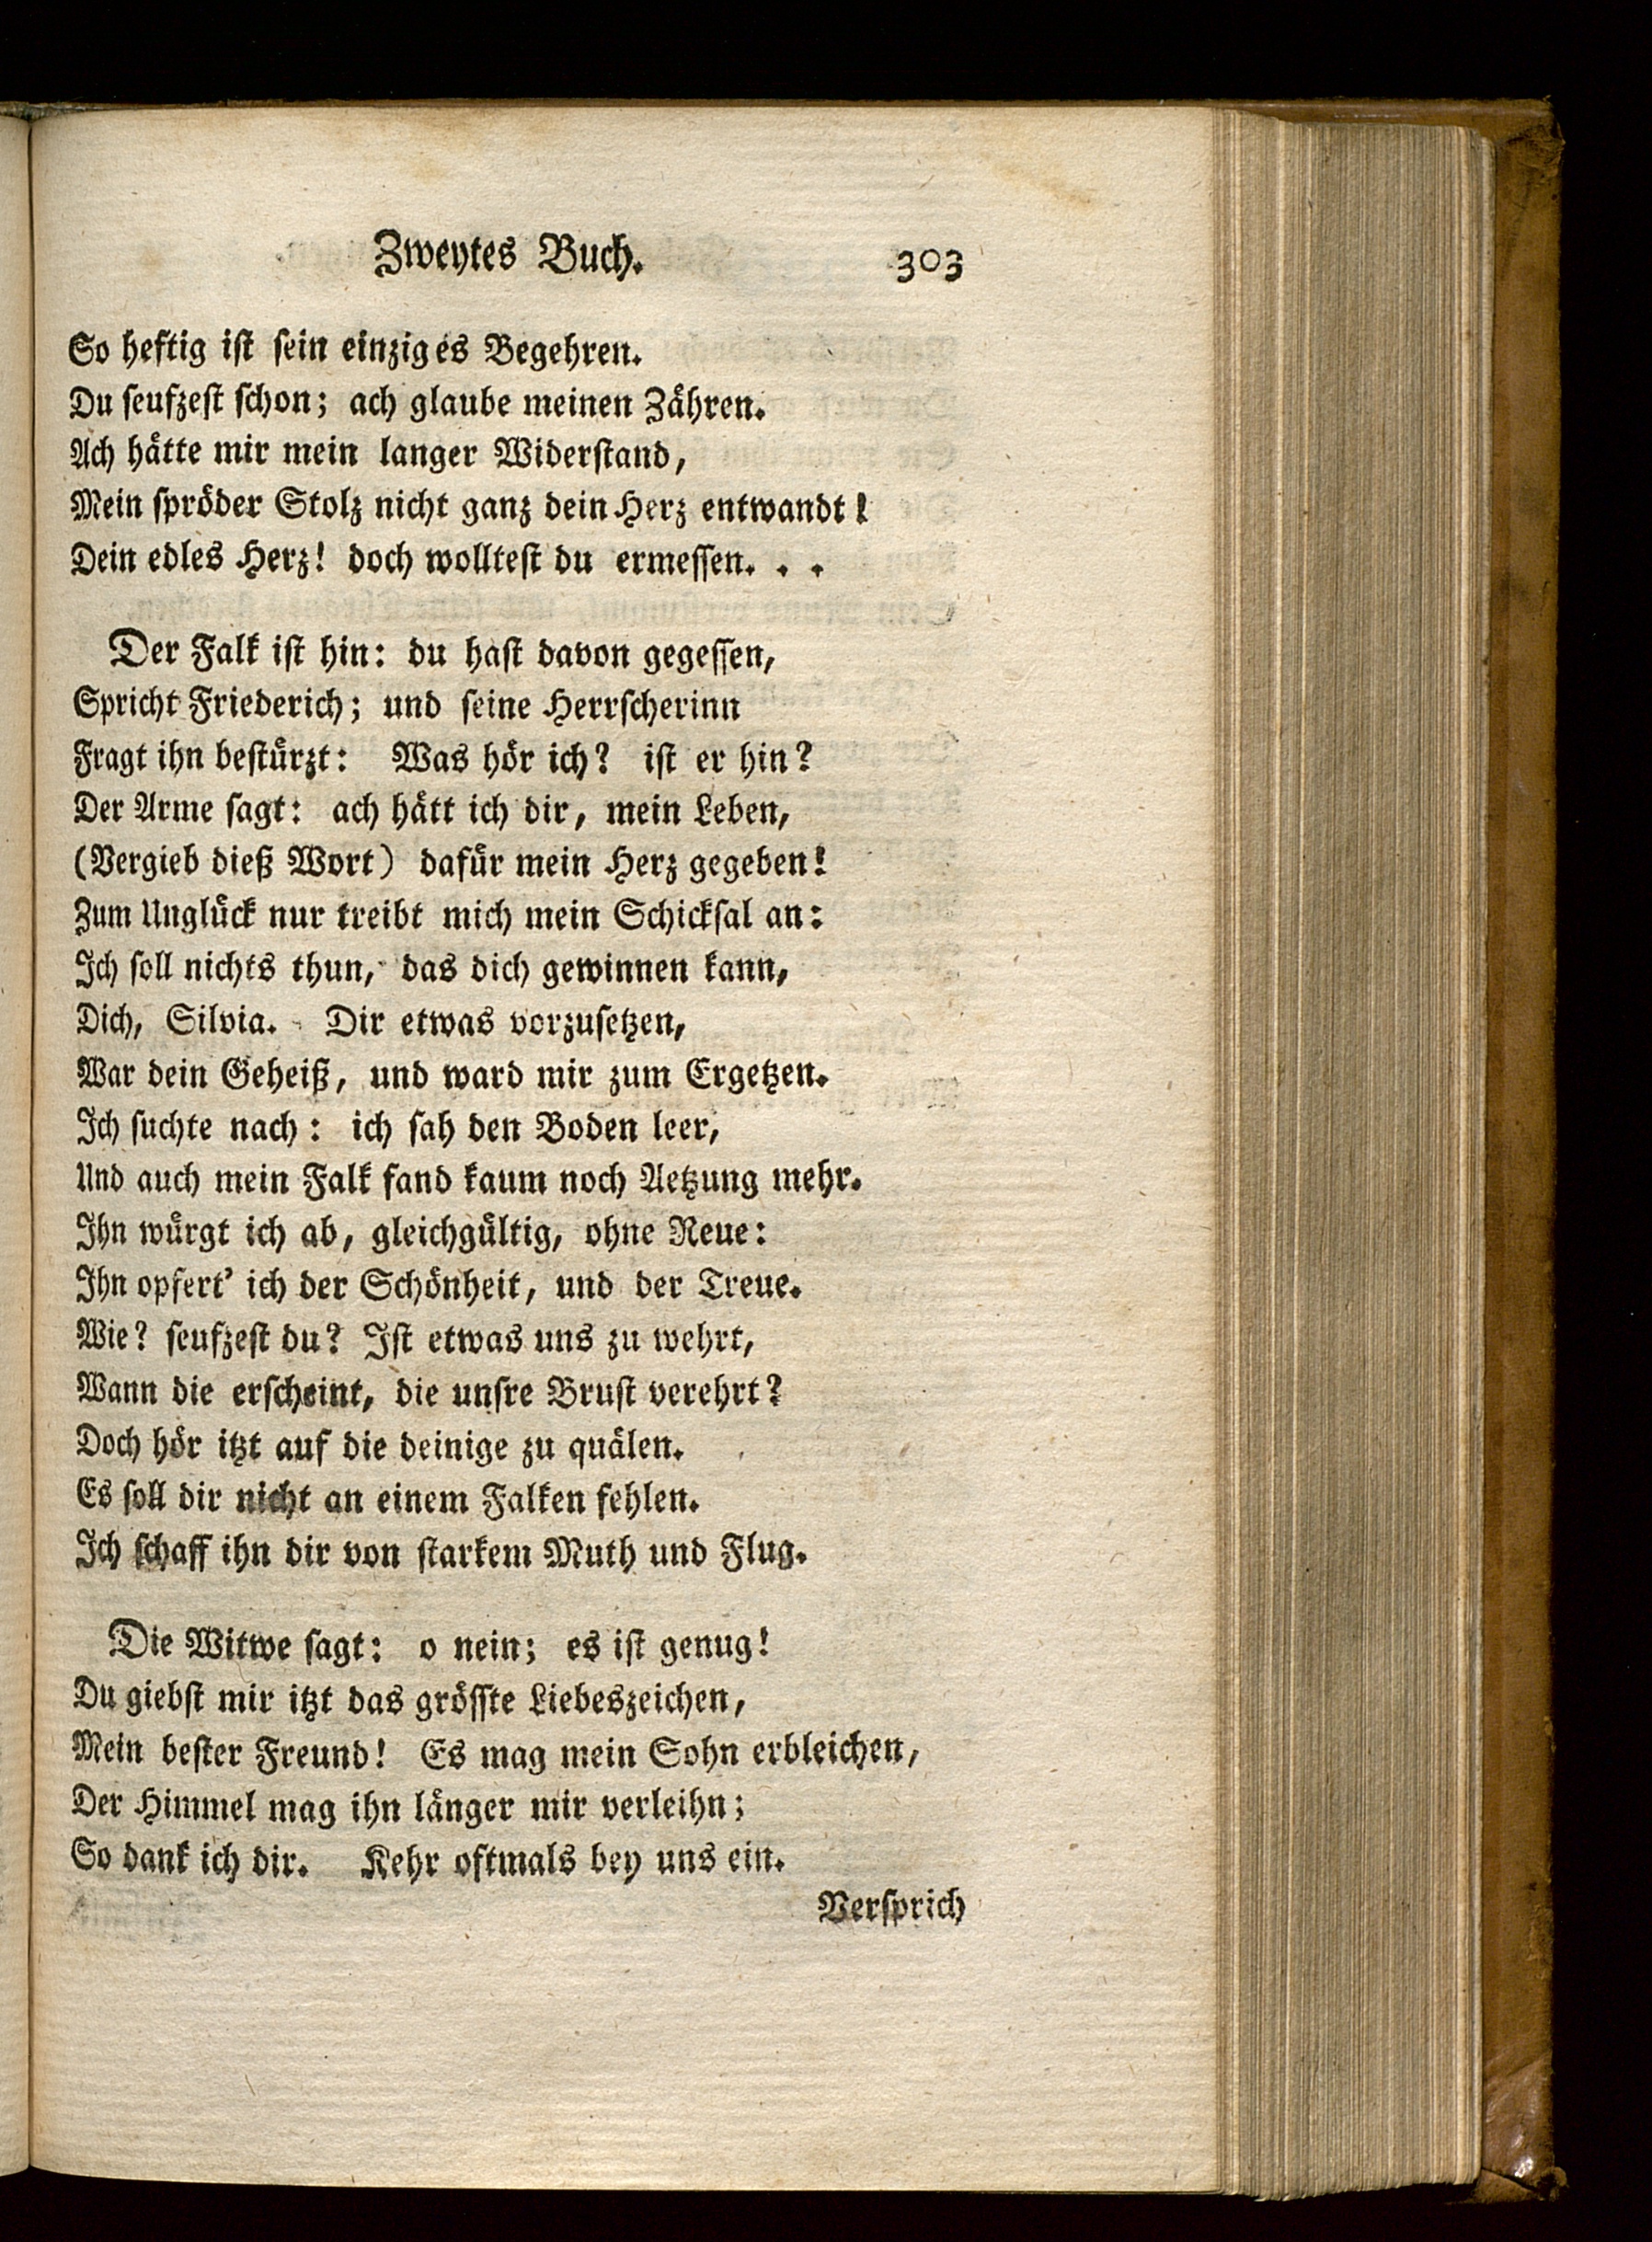 Zweytes Buch. 303
So heftig iſt ſein einziges Begehren.
Du ſeufzeſt ſchon; ach glaube meinen Zähren.
Ach hätte mir mein langer Widerſtand,
Mein ſpröder Stolz nicht ganz dein Herz entwandt!
Dein edles Herz! doch wollteſt du ermeſſen. . .
Der Falk iſt hin: du haſt davon gegeſſen,
Spricht Friederich; und ſeine Herrſcherinn
Fragt ihn beſtürzt: Was hör ich? iſt er hin?
Der Arme ſagt: ach hätt ich dir, mein Leben,
(Vergieb dieß Wort) dafür mein Herz gegeben!
Zum Unglück nur treibt mich mein Schickſal an:
Ich ſoll nichts thun, das dich gewinnen kann,
Dich, Silvia. Dir etwas vorzuſetzen,
War dein Geheiß, und ward mir zum Ergetzen.
Ich ſuchte nach: ich ſah den Boden leer,
Und auch mein Falk fand kaum noch Aetzung mehr.
Ihn würgt ich ab, gleichgültig, ohne Reue:
Ihn opfert’ ich der Schönheit, und der Treue.
Wie? ſeufzeſt du? Iſt etwas uns zu wehrt,
Wann die erſcheint, die unſre Bruſt verehrt?
Doch hör itzt auf die deinige zu quälen.
Es ſoll dir nicht an einem Falken fehlen.
Ich ſchaff ihn dir von ſtarkem Muth und Flug.
Die Witwe ſagt: o nein; es iſt genug!
Du giebſt mir itzt das gröſſte Liebeszeichen,
Mein beſter Freund! Es mag mein Sohn erbleichen,
Der Himmel mag ihn länger mir verleihn;
So dank ich dir. Kehr oftmals bey uns ein.
Verſprich